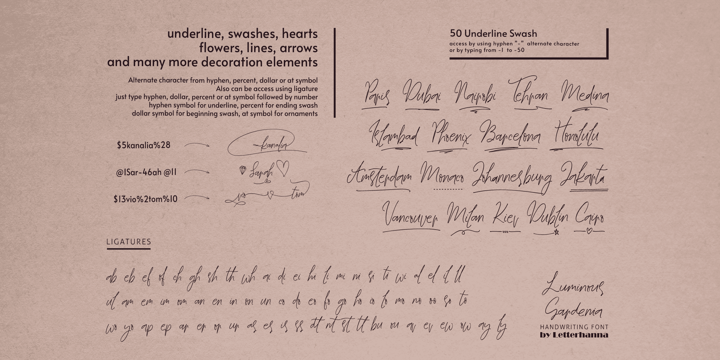 underline, swashes, hearts
flowers, lines, arrows
and many more decoration elements
Alternate character from hyphen, percent, dollar or at symbol
Also can be access using ligature
just type hyphen, dollar, percent or at symbol followed by number
hyphen symbol for underline, percent for ending swash
dollar symbol for beginning swash, at symbol for ornaments
$5kanalia%28
kanalia
@15ar-46ah @11
Sarah
$13vio%2tom%10
vio tom
50 Underline Swash
access by using hyphen "-" alternate character
or by typing from -1 to -50
Paris Dubai Nairobi Tehran Medina
Islamabad Phoenix Barcelona Honolulu
Amsterdam Monaco Johannesburg Jakarta
Vancouver Milan Kiev Dublin Cairo
LIGATURES
ab eb ef of ch gh sh th wh ai di ei hi li mi ni si ti wi al el il ll
ul am em im om an en in on un co do eo fo go ho io lo mo no oo so to
wo yo ap ep ar er or up as es is ss att nt st tt bu ou av ev ew ow ay ly
Luminous
Gardenia
HANDWRITING FONT
by Letterhanna